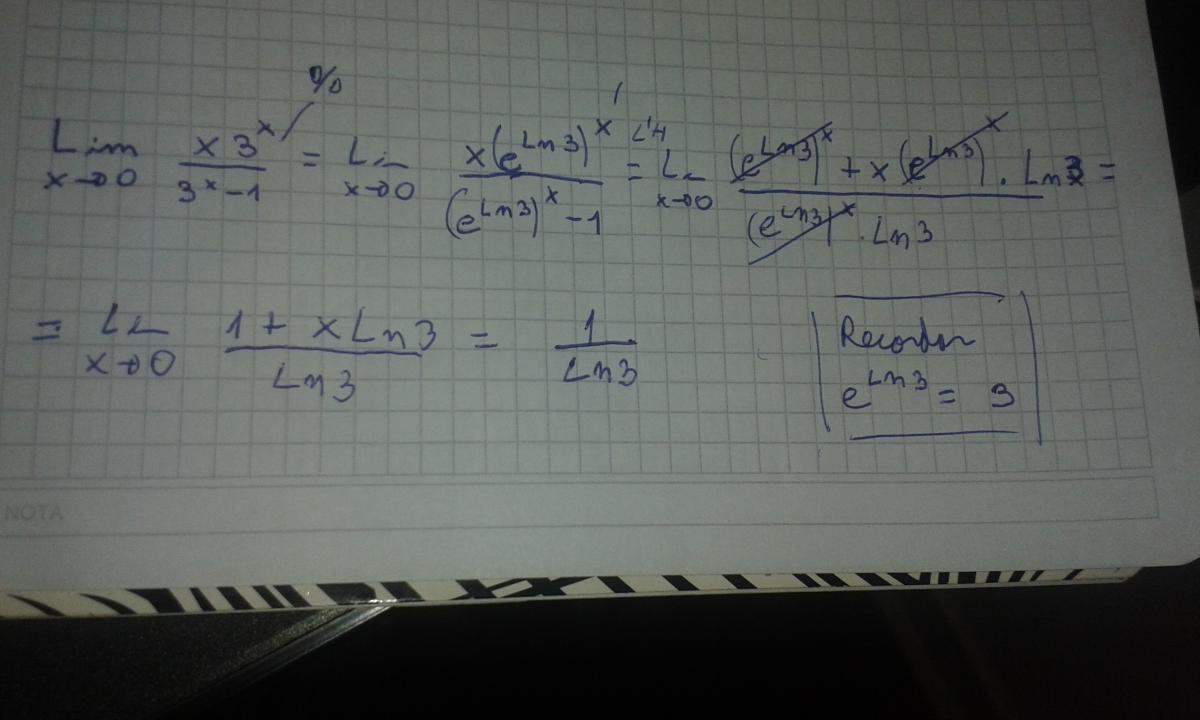 0/0
Lim x→0 x 3^x / (3^x - 1) = Li x→0 x(e^{Ln3})^x / ((e^{Ln3})^x - 1) L'H = L x→0 ((e^{Ln3})^x + x(e^{Ln3})^x . Ln3) / ((e^{Ln3})^x . Ln3) =
= Li x→0 (1 + x Ln3) / Ln3 = 1 / Ln3
Recordar
e^{Ln3} = 3
NOTA